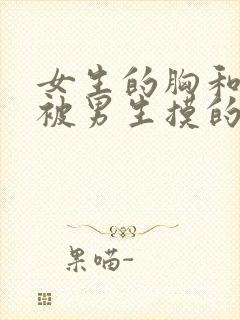 女生的胸和
被男生摸的
果喵-